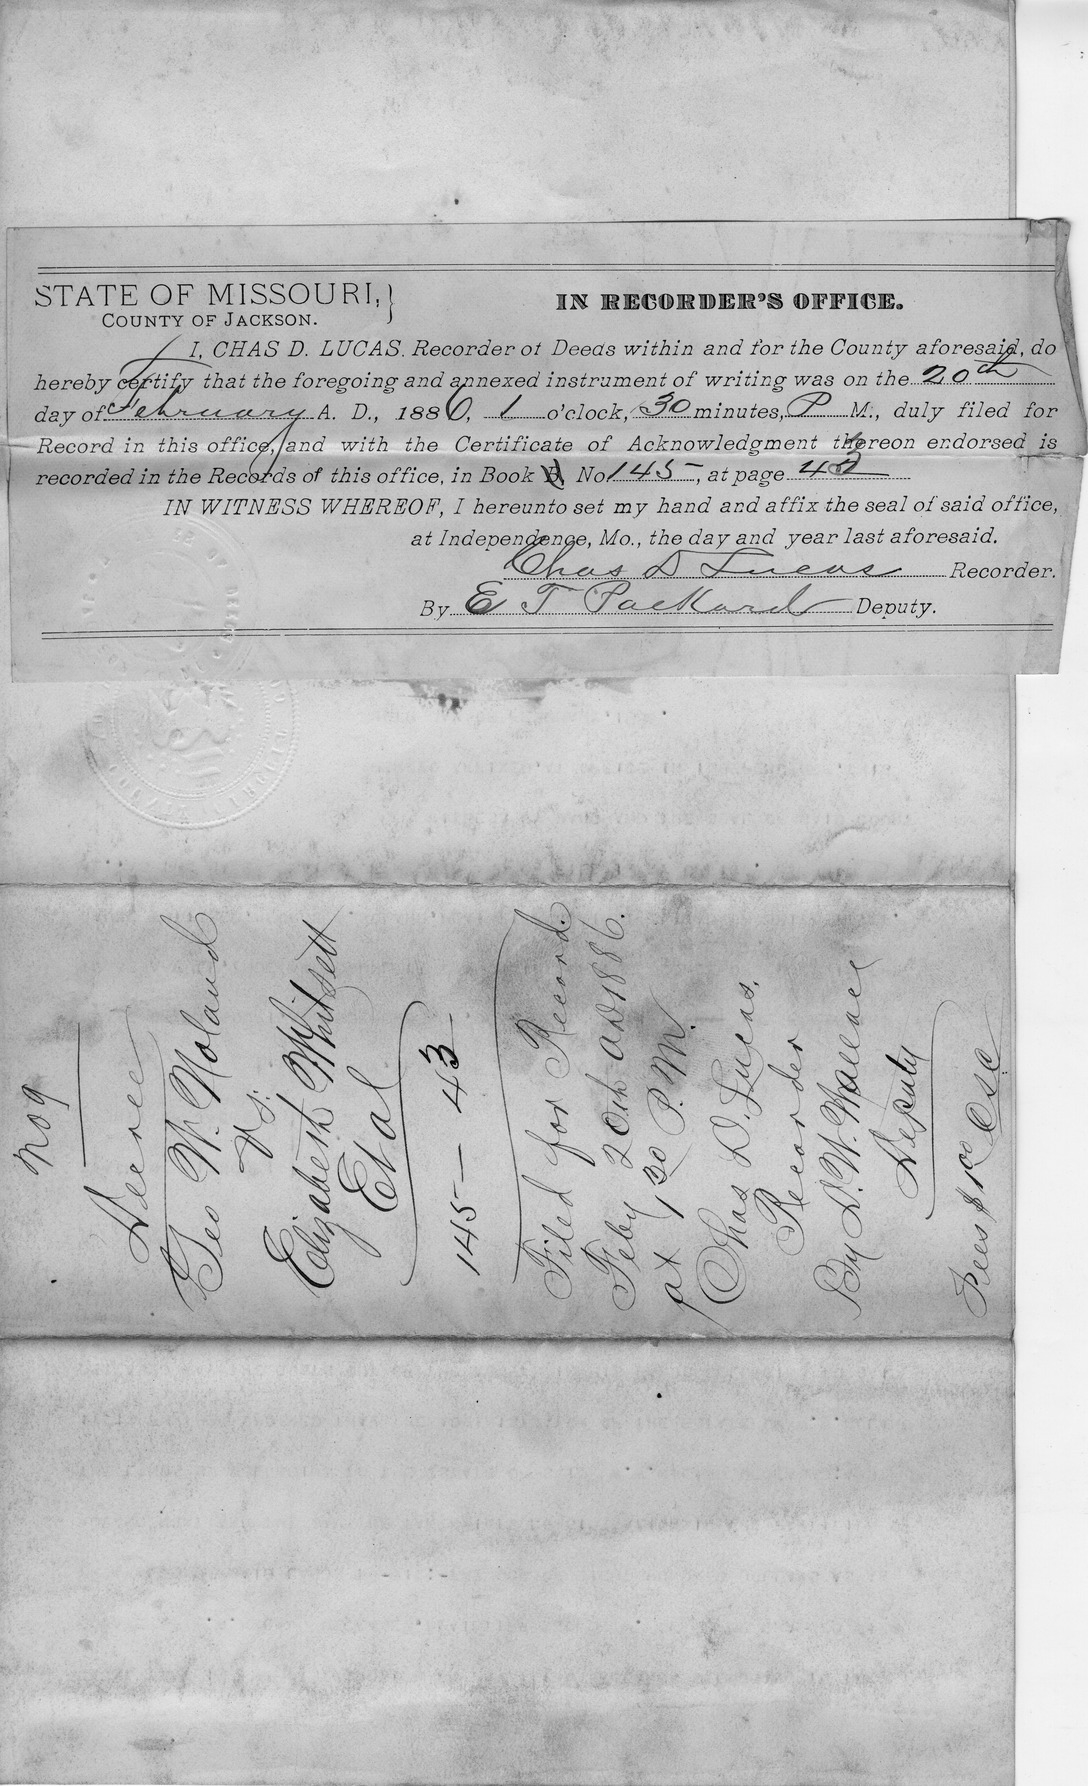 STATE OF MISSOURI, }
COUNTY OF JACKSON.
IN RECORDER'S OFFICE.
I, CHAS D. LUCAS, Recorder of Deeds within and for the County aforesaid, do
hereby certify that the foregoing and annexed instrument of writing was on the 20th
day of February A. D., 1886, 1 o'clock, 30 minutes, P M., duly filed for
Record in this office, and with the Certificate of Acknowledgment thereon endorsed is
recorded in the Records of this office, in Book B, No. 145, at page 43
IN WITNESS WHEREOF, I hereunto set my hand and affix the seal of said office,
at Independence, Mo., the day and year last aforesaid.
Chas D Lucas Recorder.
By E T Packard Deputy.
No 9
Decree
Geo W. Noland
vs.
Elizabeth Whitsett
Et al
145 — 43
Filed for Record.
Feby 20th AD 1886.
at 1 30 P. M.
Chas D. Lucas,
Recorder
By D. W. Wallace
Deputy
Fees $1.00